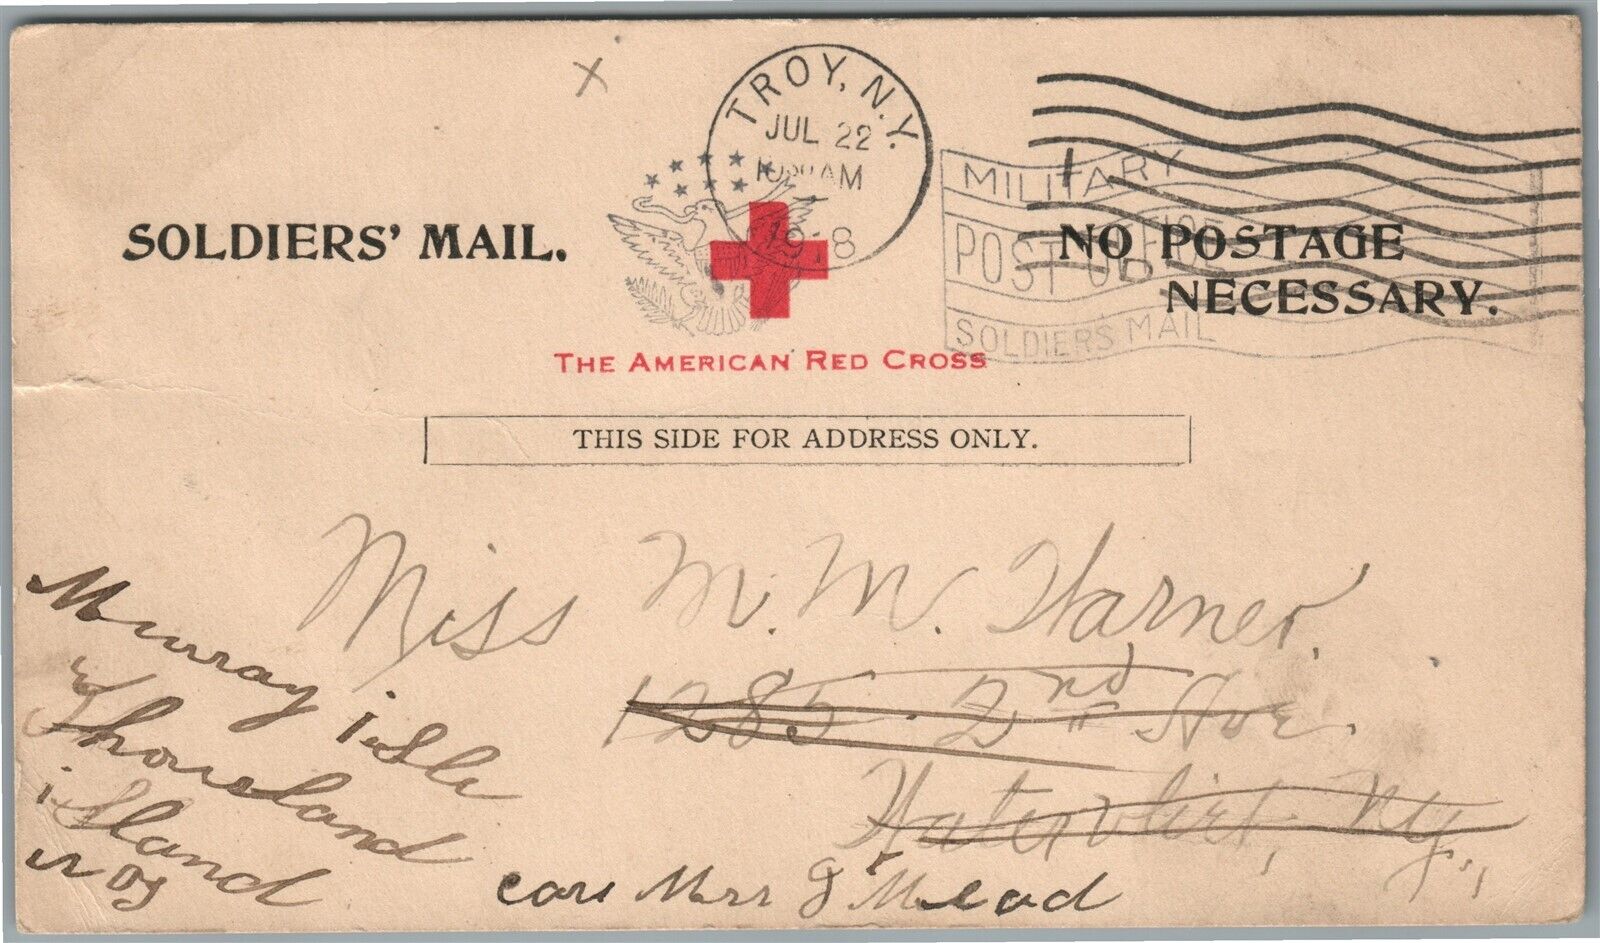 X
TROY, N.Y.
JUL 22
AM
1918
MILITARY
POST OFFICE
SOLDIERS MAIL
SOLDIERS' MAIL.
NO POSTAGE
NECESSARY.
THE AMERICAN RED CROSS
THIS SIDE FOR ADDRESS ONLY.
Miss M. M. Warner.
1285 2nd Ave.
Watervliet, Ny.,
Murray isle
Thousland
island
n oy
care Mrs J Mead